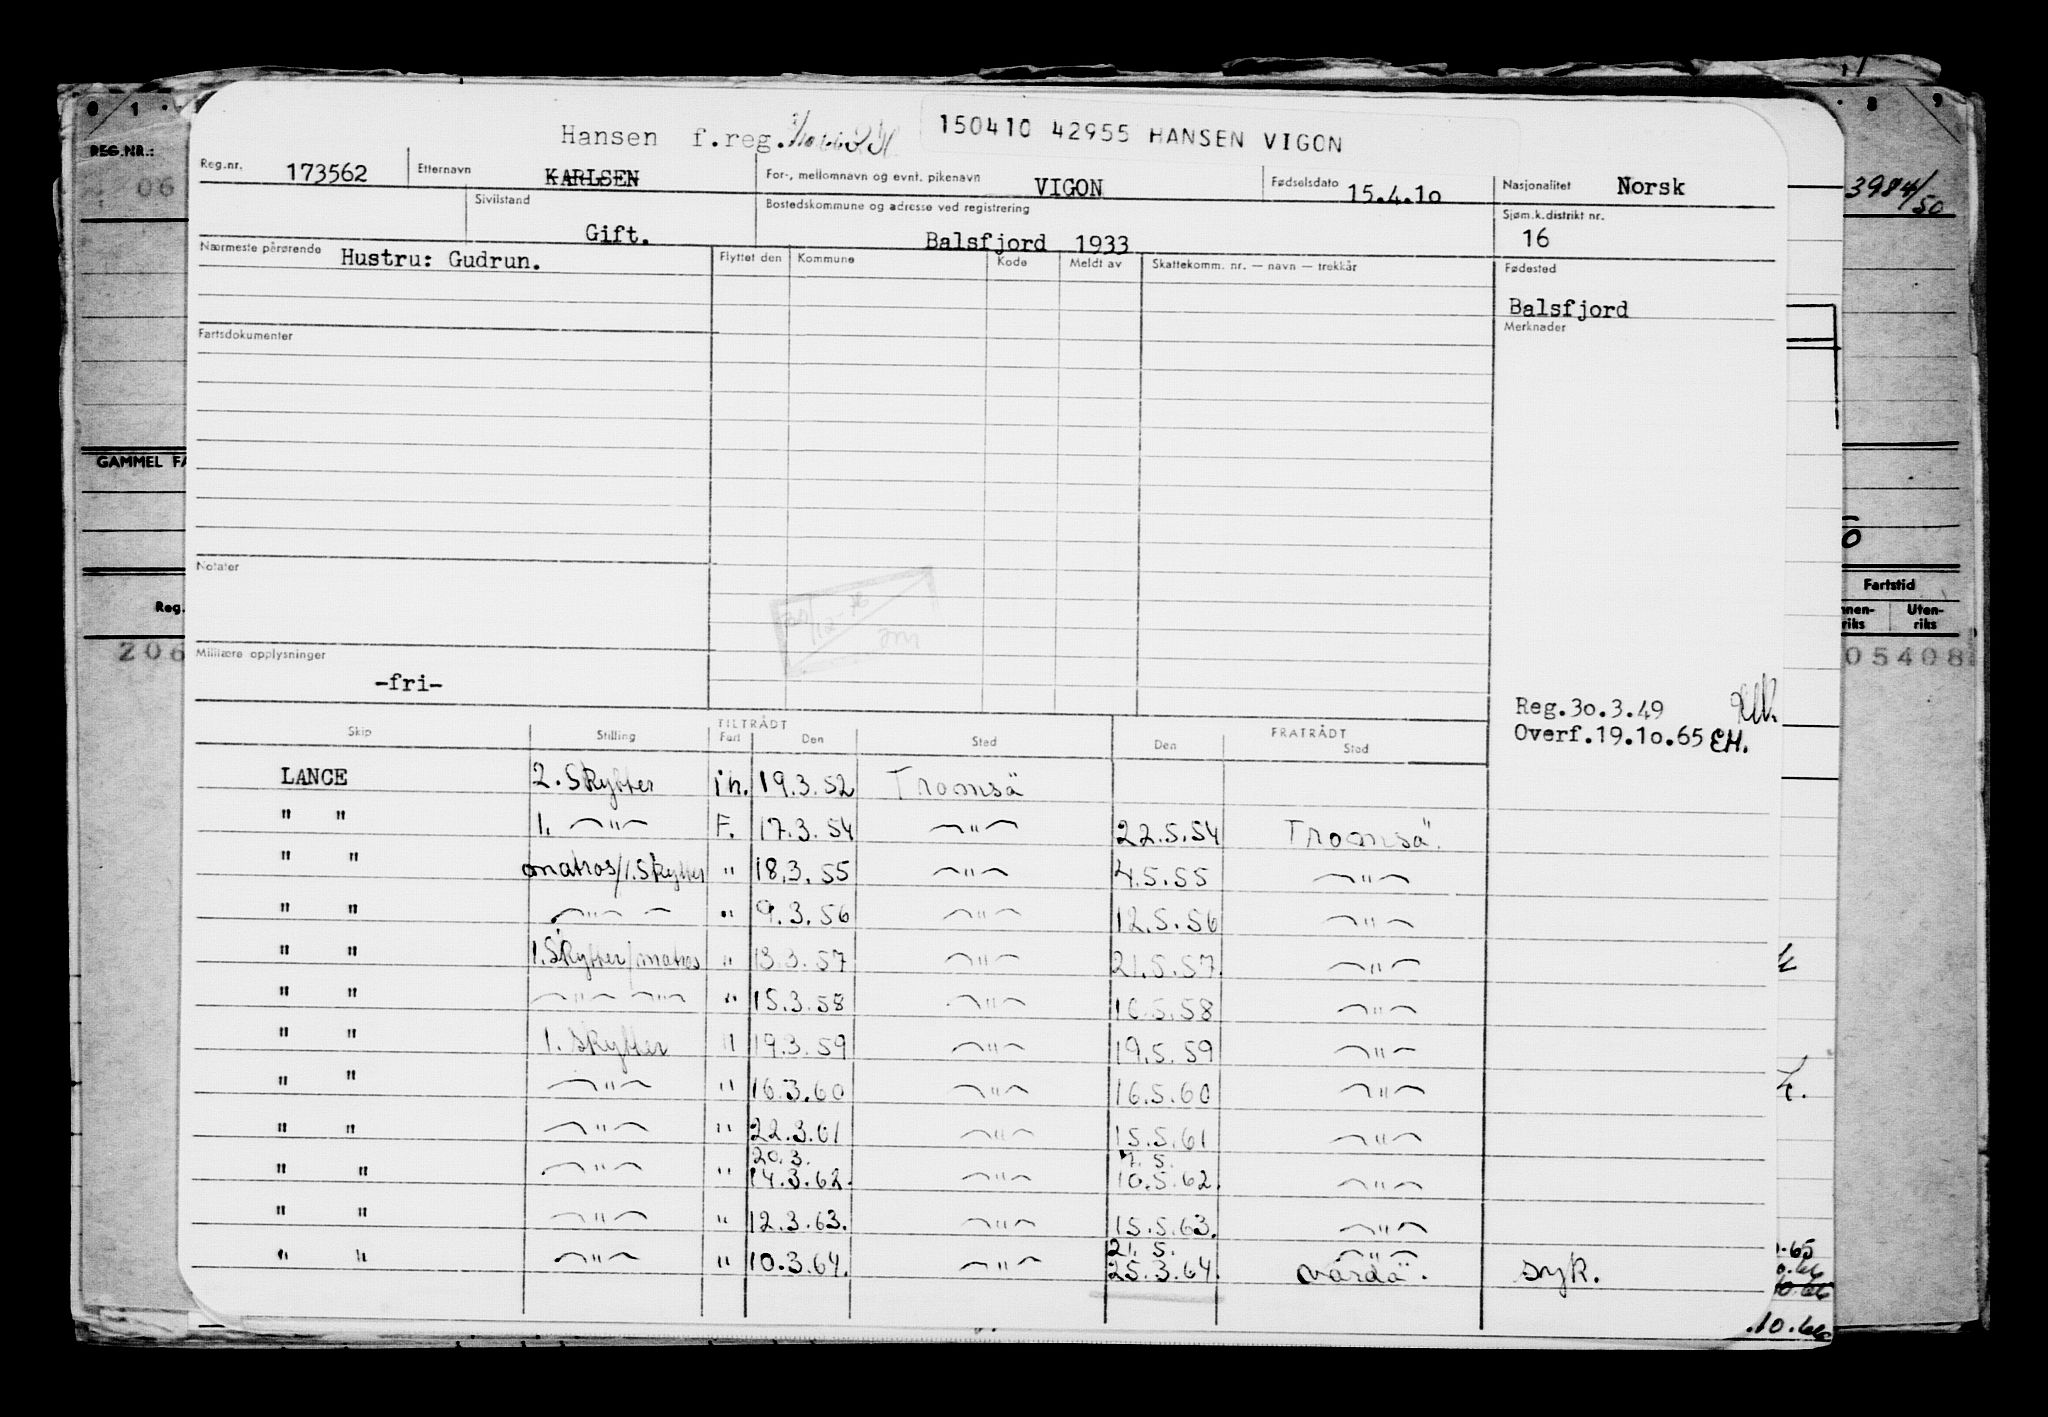 150410 42955 HANSEN VIGON
Hansen f.reg.
Reg.nr. 173562 Etternavn KARLSEN For-, mellomnavn og evnt. pikenavn VIGON Fødselsdato 15.4.1o Nasjonalitet Norsk
Sivilstand Gift. Bostedskommune og adresse ved registrering Balsfjord 1933 Sjøm.k.distrikt nr. 16
Nærmeste pårørende Hustru: Gudrun. Flyttet den Kommune Kode Meldt av Skattekomm. nr. — navn — trekkår Fødested
Balsfjord
Fartsdokumenter Merknader
Notater
Militære opplysninger
-fri-
Reg.3o.3.49
Overf.19.1o.65 EH.
Skip Stilling TILTRÅDT Fart Den Sted FRATRÅDT Den Sted
LANCE 2. Skytter in. 19.3.52 Tromsö
" " 1. —"— F. 17.3.54 —"— 22.5.54 Tromsö.
" " matros/1.Skytter " 18.3.55 —"— 4.5.55 —"—
" " —"— — " 9.3.56 —"— 12.5.56 —"—
" " 1.Skytter/matros " 13.3.57 —"— 21.5.57. —"—
" " —"— —"— " 15.3.58 —"— 16.5.58 —"—
" " 1. Skytter " 19.3.59 —"— 19.5.59 —"—
" " —"— " 16.3.60 —"— 16.5.60 —"—
" " —"— " 22.3.61 —"— 15.5.61 —"—
20.3. 7.5.
" " —"— " 14.3.62. —"— 10.5.62. —"—
" " —"— " 12.3.63. —"— 15.5.63. —"—
21. 5. —"—
" " —"— " 10.3.64. —"— 25.3.64. Vardö. syk.
REG.NR.:
0 1
06
GAMMEL FA
Reg.
206
8 9
3984/50
Fartstid
Innen-riks Uten-riks
05408
.10.66